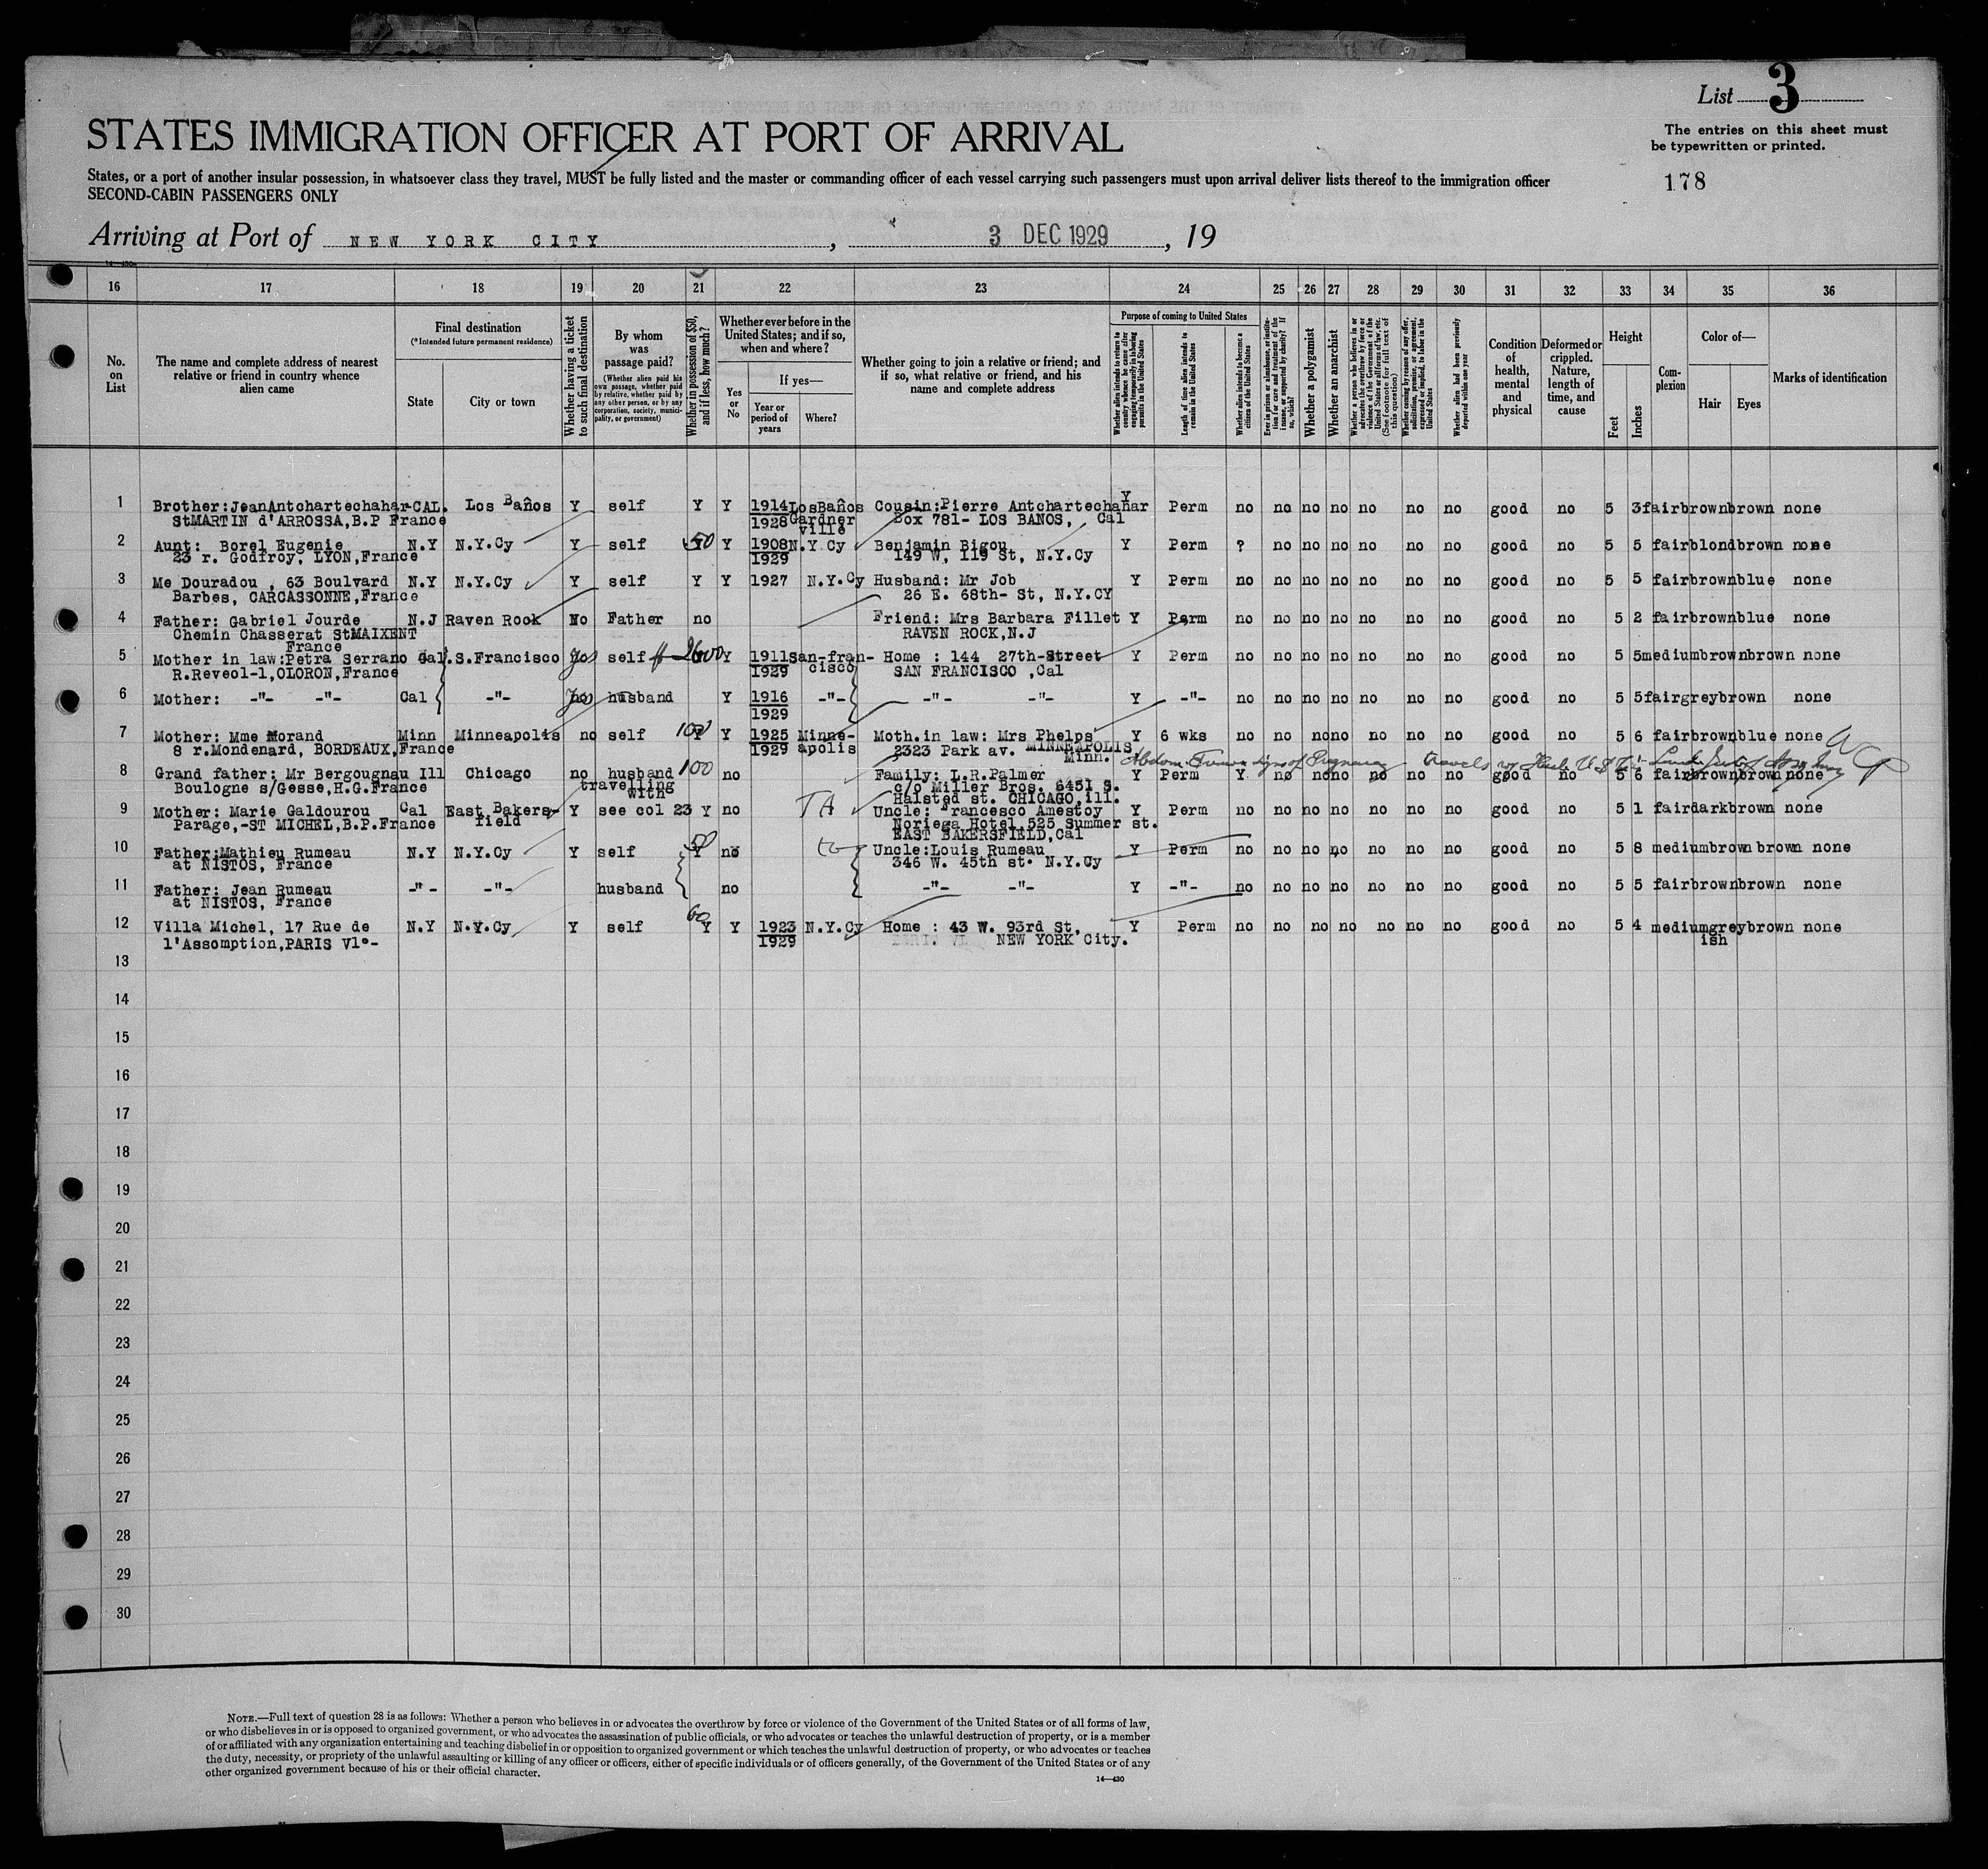 List 3
The entries on this sheet must
be typewritten or printed.
178
STATES IMMIGRATION OFFICER AT PORT OF ARRIVAL
States, or a port of another insular possession, in whatsoever class they travel, MUST be fully listed and the master or commanding officer of each vessel carrying such passengers must upon arrival deliver lists thereof to the immigration officer
SECOND-CABIN PASSENGERS ONLY
Arriving at Port of NEW YORK CITY, 3 DEC 1929, 19
16 17 18 19 20 21 22 23 24 25 26 27 28 29 30 31 32 33 34 35 36
No. on List
The name and complete address of nearest relative or friend in country whence alien came
Final destination
(*Intended future permanent residence)
State
City or town
Whether having a ticket to such final destination
By whom was passage paid?
(Whether alien paid his own passage, whether paid by relative, whether paid by any other person, or by any corporation, society, municipality, or government)
Whether in possession of $50, and if less, how much?
Whether ever before in the United States; and if so, when and where?
Yes or No
If yes—
Year or period of years
Where?
Whether going to join a relative or friend; and if so, what relative or friend, and his name and complete address
Purpose of coming to United States
Whether alien intends to return to country whence he came after engaging temporarily in laboring pursuits in the United States
Length of time alien intends to remain in the United States
Whether alien intends to become a citizen of the United States
Ever in prison or almshouse, or institution for care and treatment of the insane, or supported by charity? If so, which?
Whether a polygamist
Whether an anarchist
Whether a person who believes in or advocates the overthrow by force or violence of the Government of the United States or all forms of law, etc. (See footnote for full text of this question)
Whether coming by reason of any offer, solicitation, promise, or agreement, expressed or implied, to labor in the United States
Whether alien had been previously deported within one year
Condition of health, mental and physical
Deformed or crippled. Nature, length of time, and cause
Height
Feet
Inches
Complexion
Color of—
Hair
Eyes
Marks of identification
1 Brother:JeanAntchartechahar-CAL. Los Baños Y self Y Y 1914 LosBaños Cousin:Pierre Antchartechahar Y Perm no no no no no no no good no 5 3 fair brown brown none
StMARTIN d'ARROSSA,B.P France 1928 Gardner ville Box 781- LOS BANOS, Cal
2 Aunt: Borel Eugenie N.Y N.Y.Cy Y self 50 Y 1908 N.Y Cy Benjamin Bigou Y Perm ? no no no no no no good no 5 5 fair blond brown none
23 r. Godfroy, LYON,France 1929 149 W, 119 St, N.Y.Cy
3 Me Douradou , 63 Boulvard N.Y N.Y.Cy Y self Y Y 1927 N.Y.Cy Husband: Mr Job Y Perm no no no no no no no good no 5 5 fair brown blue none
Barbes, CARCASSONNE,France 26 E. 68th- St, N.Y.CY
4 Father: Gabriel Jourde N.J Raven Rock No Father no Friend: Mrs Barbara Fillet Y Perm no no no no no no no good no 5 2 fair brown blue none
Chemin Chasserat StMAIXENT RAVEN ROCK,N.J
France
5 Mother in law:Petra Serrano Cal. S.Francisco yes self 2600 Y 1911 San-fran- Home : 144 27th-Street Y Perm no no no no no no no good no 5 5 medium brown brown none
R.Reveol-1,OLORON,France 1929 cisco SAN FRANCISCO ,Cal
6 Mother: -"- -"- Cal -"- yes husband Y 1916 -"- -"- -"- Y -"- no no no no no no no good no 5 5 fair grey brown none
1929
7 Mother: Mme Morand Minn Minneapolis no self 100 Y 1925 Minne- Moth.in law: Mrs Phelps Y 6 wks no no no no no no no good no 5 6 fair brown blue none
8 r.Mondenard, BORDEAUX,France 1929 apolis 2323 Park av. MINNEAPOLIS, Minn.
8 Grand father: Mr Bergougnau Ill Chicago no husband 100 no Family: L.R.Palmer Y Perm Y no no no no no no good no 5 6 fair brown brown none
Boulogne s/Gesse,H.G.France travelling c/o Miller Bros. 6451 S.
with Halsted st. CHICAGO,ill.
9 Mother: Marie Galdourou Cal East Bakers- Y see col 23 Y no TA Uncle: Francesco Amestoy Y Perm no no no no no no no good no 5 1 fair dark brown none
Parage,-ST MICHEL,B.P.France field Noriega Hotel,525 Summer st.
EAST BAKERSFIELD,Cal
10 Father:Mathieu Rumeau N.Y N.Y.Cy Y self 50 no Uncle:Louis Rumeau Y Perm no no no no no no no good no 5 8 medium brown brown none
at NISTOS, France 346 W. 45th st. N.Y.Cy
11 Father: Jean Rumeau -"- -"- husband no -"- -"- Y -"- no no no no no no no good no 5 5 fair brown brown none
at NISTOS, France
12 Villa Michel, 17 Rue de N.Y N.Y.Cy Y self 60 Y Y 1923 N.Y.Cy Home : 43 W. 93rd St, Y Perm no no no no no no no good no 5 4 medium grey brown none
l'Assomption,PARIS VIe- 1929 NEW YORK City. ish
13
14
15
16
17
18
19
20
21
22
23
24
25
26
27
28
29
30
NOTE.—Full text of question 28 is as follows: Whether a person who believes in or advocates the overthrow by force or violence of the Government of the United States or of all forms of law,
or who disbelieves in or is opposed to organized government, or who advocates the assassination of public officials, or who advocates or teaches the unlawful destruction of property, or is a member
of or affiliated with any organization entertaining and teaching disbelief in or opposition to organized government or which teaches the unlawful destruction of property, or who advocates or teaches
the duty, necessity, or propriety of the unlawful assaulting or killing of any officer or officers, either of specific individuals or of officers generally, of the Government of the United States or of any
other organized government because of his or their official character.
14—430